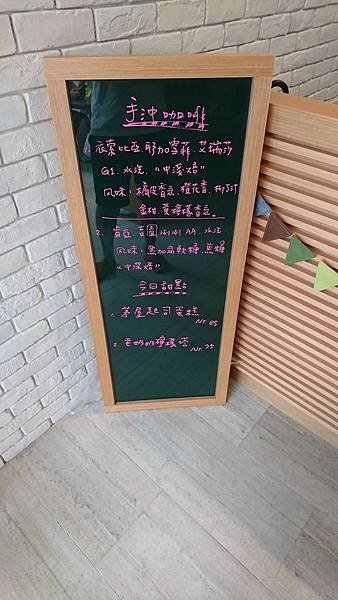 手沖咖啡
衣索比亞 耶加雪菲 艾瑞莎
G1. 水洗. "中淺焙"
風味: 橘皮香氣. 橙花香. 柳汀
金桔. 黃檸檬香氣.
2. 肯亞 AA. 水洗
風味: 黑加侖軟糖. 烏梅
"中深焙"
今日甜點
1. 茅屋起司蛋糕.
NT. 85
2. 老奶奶檸檬塔.
NT. 75